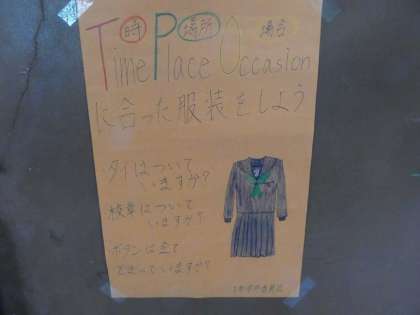 時 場所 場合
Time Place Occasion
に合った服装をしよう
・タイはついて
いますか?
・校章はついて
いますか?
・ボタンは全て
とまっていますか?